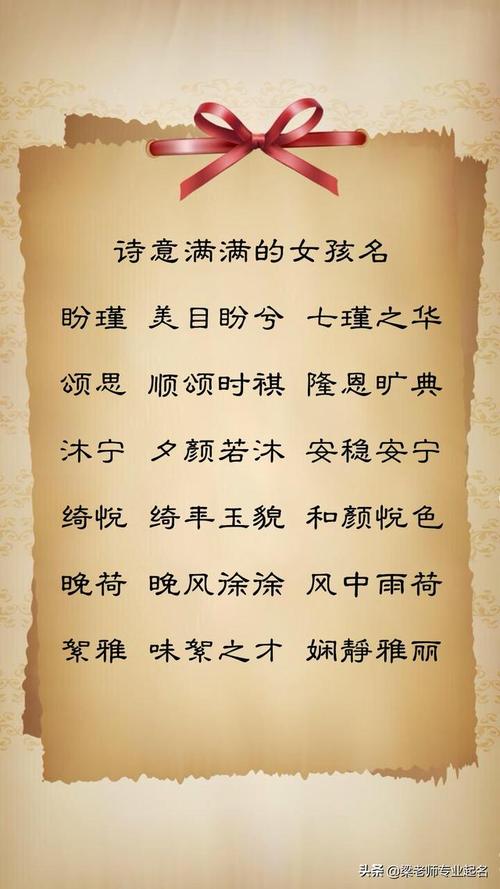 诗意满满的女孩名
盼瑾 美目盼兮 七瑾之华
颂思 顺颂时祺 隆恩旷典
沐宁 夕颜若沐 安稳安宁
绮悦 绮年玉貌 和颜悦色
晚荷 晚风徐徐 风中雨荷
絮雅 味絮之才 娴静雅丽
头条 @梁老师专业起名